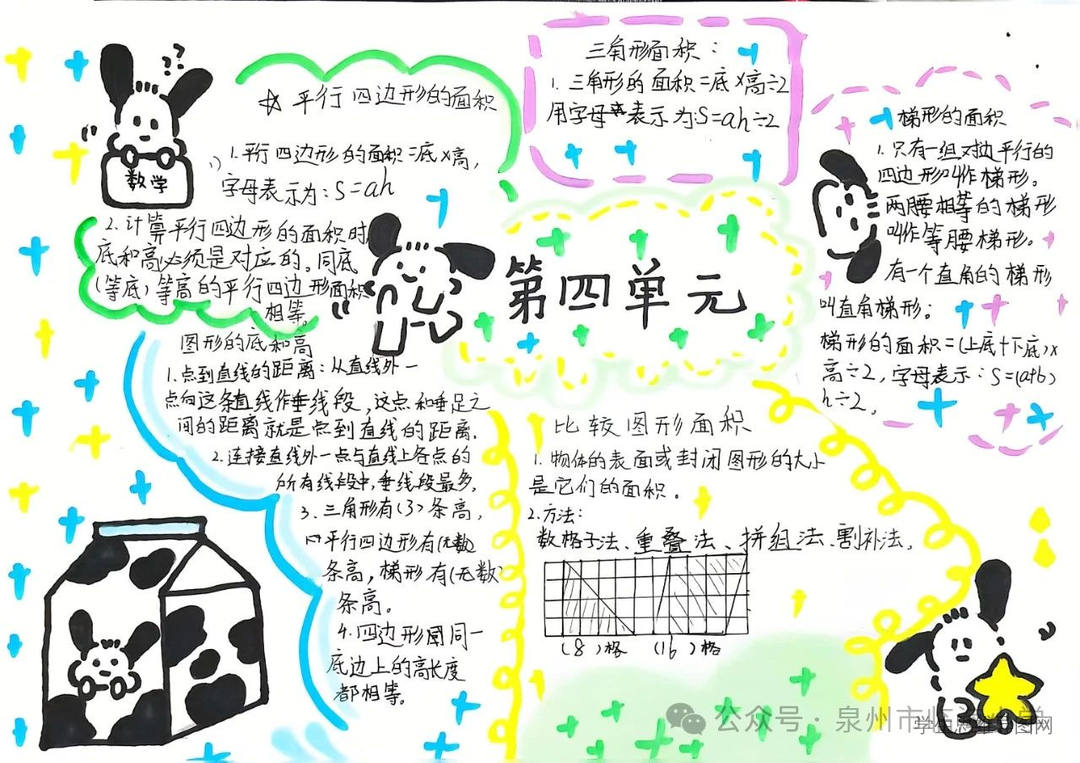 数学
☆平行四边形的面积
1.平行四边形的面积=底×高,
字母表示为:S=ah
2.计算平行四边形的面积时
底和高必须是对应的。同底
(等底)等高的平行四边形面积
相等。
三角形面积:
1.三角形的面积=底×高÷2
用字母表示为:S=ah÷2
梯形的面积
1.只有一组对边平行的
四边形叫作梯形。
两腰相等的梯形
叫作等腰梯形。
有一个直角的梯形
叫直角梯形:
梯形的面积=(上底+下底)×
高÷2,字母表示:S=(a+b)
h÷2。
第四单元
图形的底和高
1.点到直线的距离:从直线外一
点向这条直线作垂线段,这点和垂足之
间的距离就是点到直线的距离.
2.连接直线外一点与直线上各点的
所有线段中,垂线段最多,
3.三角形有(3)条高,
平行四边形有(无数)
条高,梯形有(无数)
条高。
4.四边形同一
底边上的高长度
都相等。
比较图形面积
1.物体的表面或封闭图形的大小
是它们的面积。
2.方法:
数格子法、重叠法、拼组法、割补法。
(8)格 (16)格
公众号·泉州市